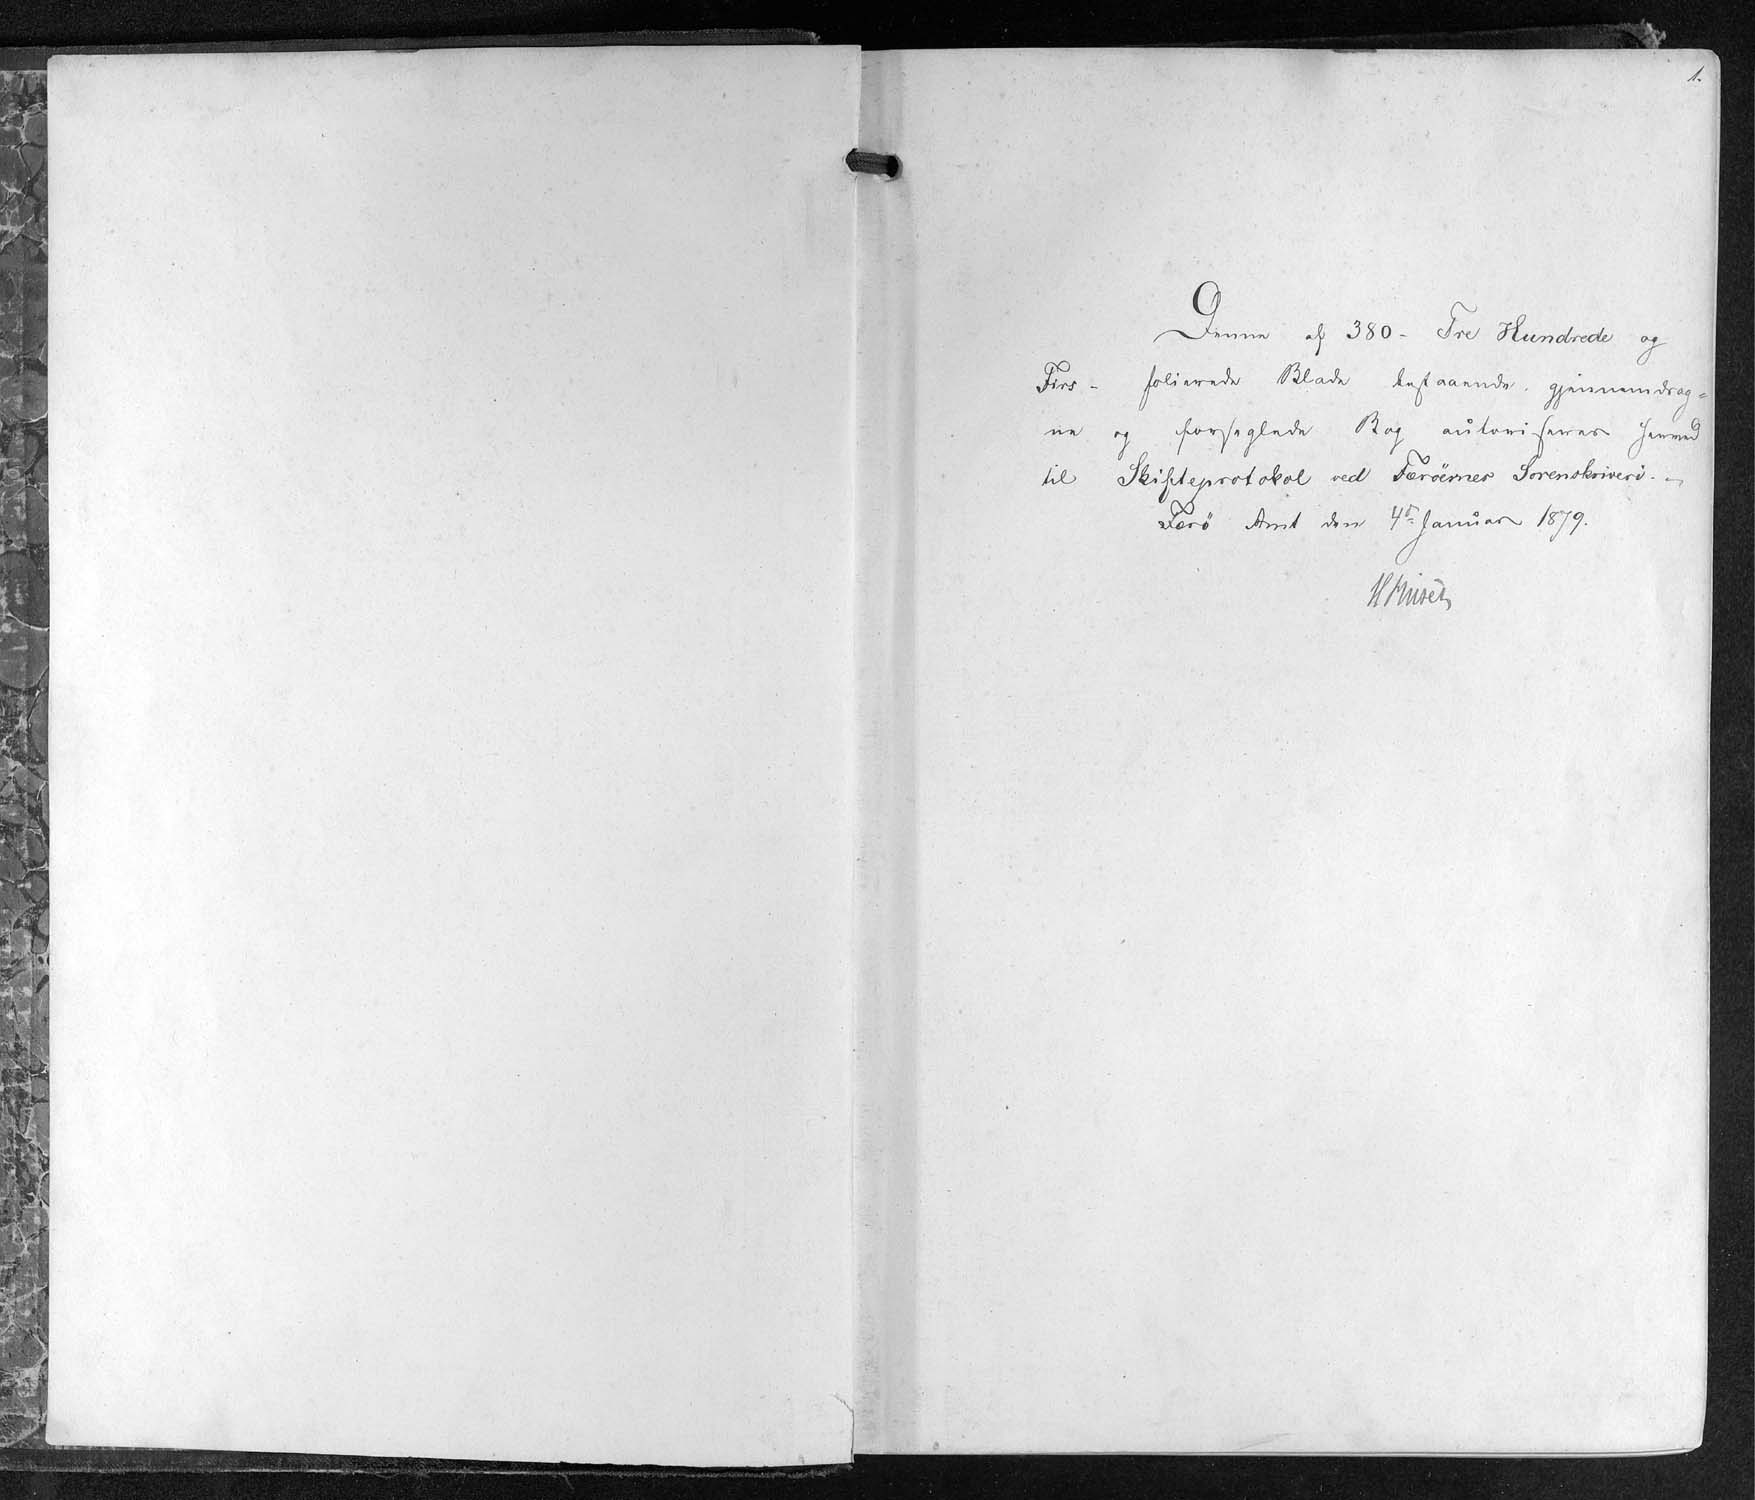 1.
Denne af 380 - Tre Hundrede og
Firs - folierede Blade bestaaende, gjennemdrag=
ne og forseglede Bog autoriseres herved
til Skifteprotokol ved Færöernes Sorenskriveri. -
Færö Amt den 4de Januar 1879.